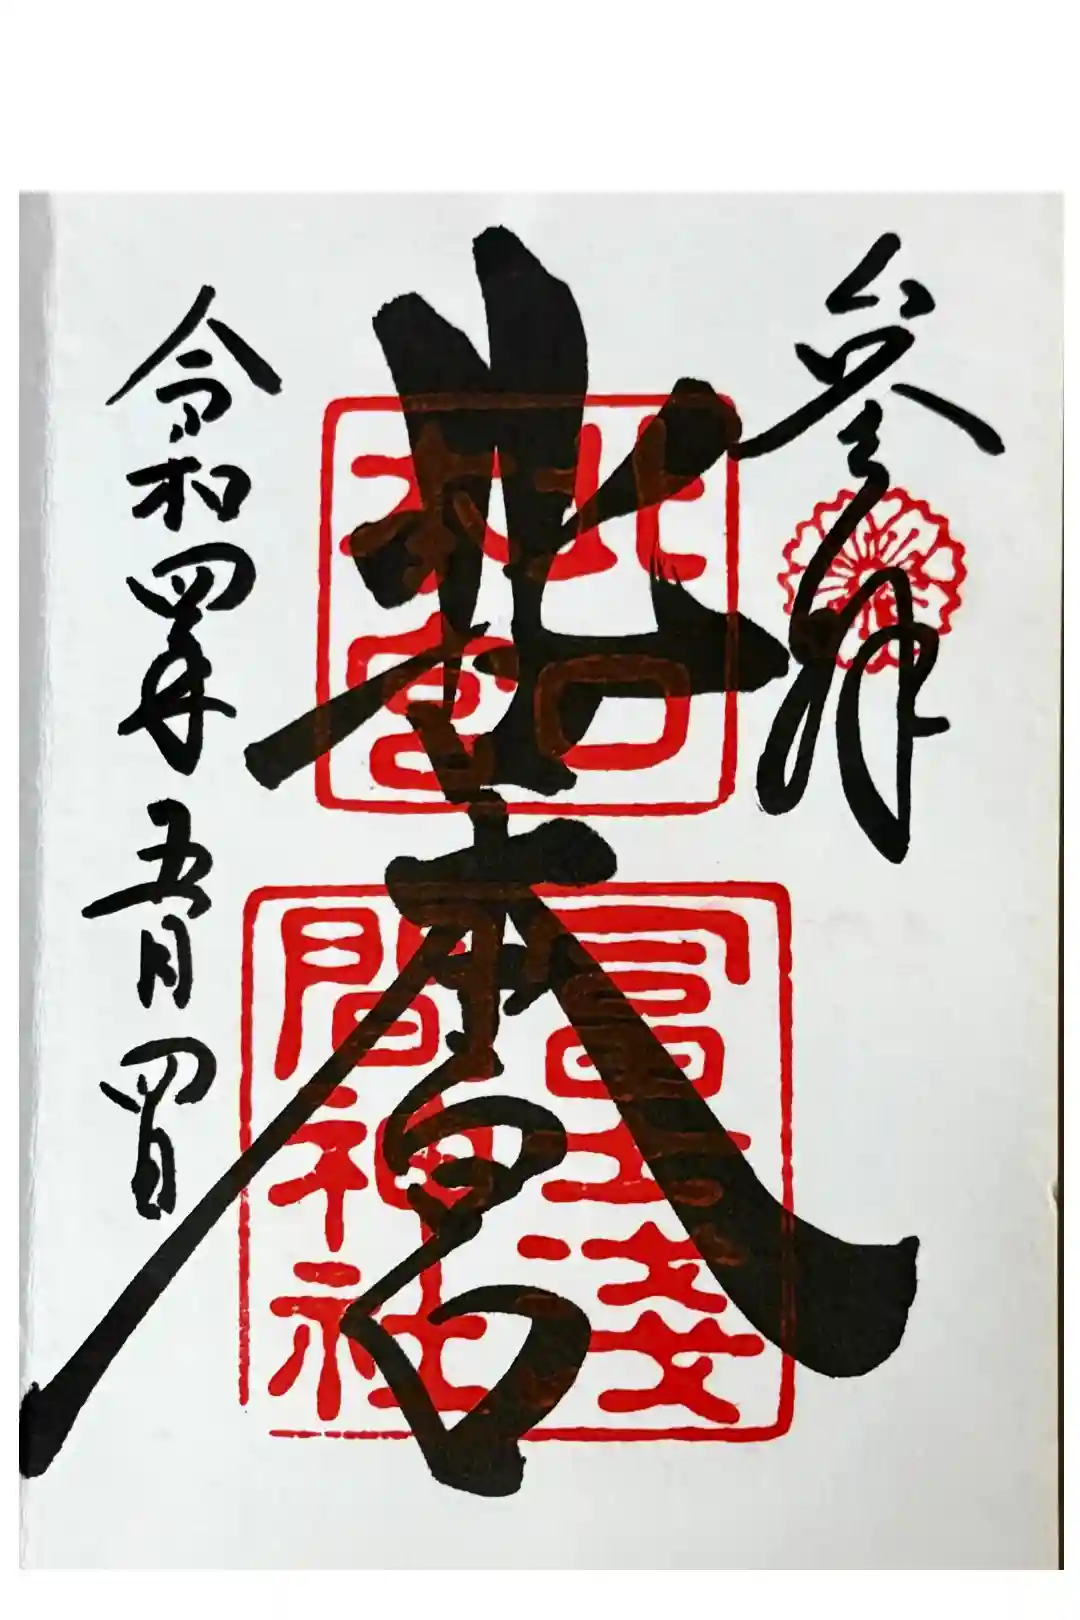 參拝
北口本宮
令和四年五月四日
北口
本宮
冨士淺
間神社